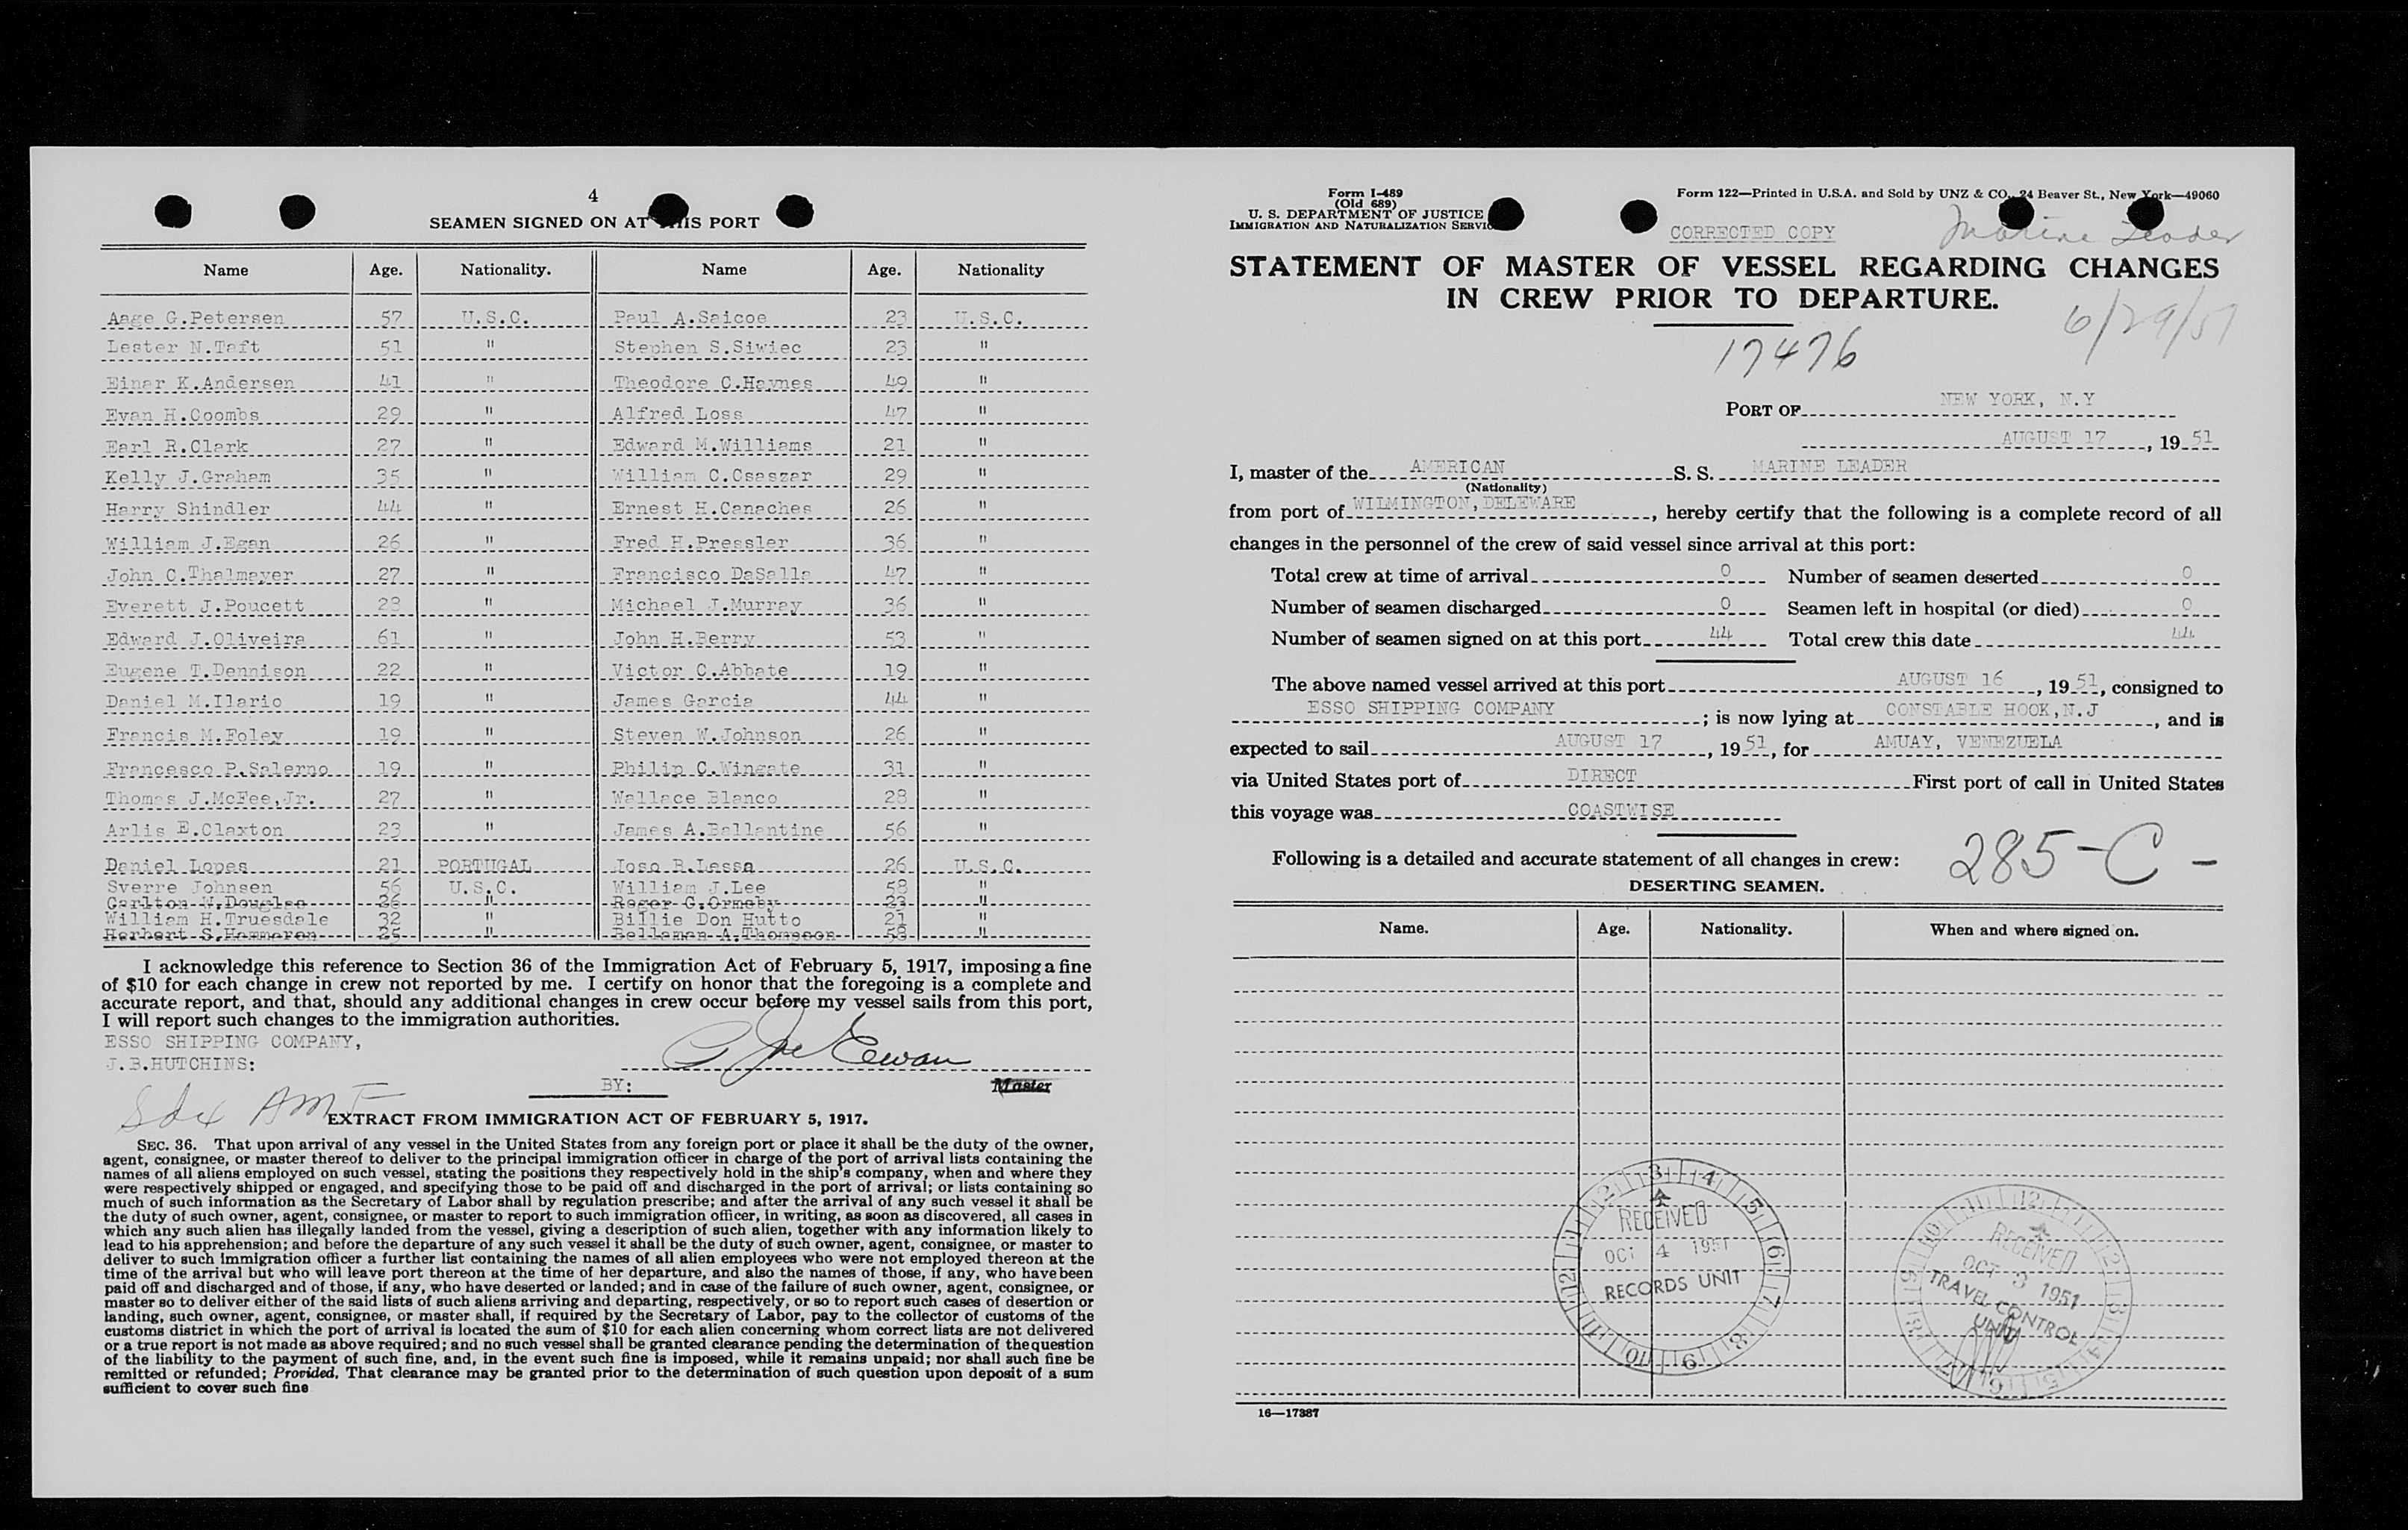 4
SEAMEN SIGNED ON AT THIS PORT
Name Age. Nationality. Name Age. Nationality
Aage G.Petersen 57 U.S.C. Paul A.Saicoe 23 U.S.C.
Lester N.Taft 51 " Stephen S.Siwiec 23 "
Einar K.Andersen 41 " Theodore C.Haynes 49 "
Evan H.Coombs 29 " Alfred Loss 47 "
Earl R.Clark 27 " Edward M.Williams 21 "
Kelly J.Graham 35 " William C.Csaszar 29 "
Harry Shindler 44 " Ernest H.Canaches 26 "
William J.Egan 26 " Fred H.Pressler 36 "
John C.Thalmayer 27 " Francisco DaSalla 47 "
Everett J.Poucett 28 " Michael J.Murray 36 "
Edward J.Oliveira 61 " John H.Berry 53 "
Eugene T.Dennison 22 " Victor C.Abbate 19 "
Daniel M.Ilario 19 " James Garcia 44 "
Francis M.Foley 19 " Steven W.Johnson 26 "
Francesco P.Salerno 19 " Philip C.Wingate 31 "
Thomas J.McFee,Jr. 27 " Wallace Blanco 28 "
Arlis E.Claxton 23 " James A.Ballantine 56 "
Daniel Lopes 21 PORTUGAL Joso B.Lessa 26 U.S.C.
Sverre Johnsen 56 U.S.C. William J.Lee 58 "
Carlton W.Douglas 26 " Roger C.Ormsby 23 "
William H.Truesdale 32 " Billie Don Hutto 21 "
Herbert S.Hammaren 25 " Bellaman A.Thompson 58 "
I acknowledge this reference to Section 36 of the Immigration Act of February 5, 1917, imposing a fine
of $10 for each change in crew not reported by me. I certify on honor that the foregoing is a complete and
accurate report, and that, should any additional changes in crew occur before my vessel sails from this port,
I will report such changes to the immigration authorities.
ESSO SHIPPING COMPANY,
J.B.HUTCHINS:
BY: Master
EXTRACT FROM IMMIGRATION ACT OF FEBRUARY 5, 1917.
SEC. 36. That upon arrival of any vessel in the United States from any foreign port or place it shall be the duty of the owner,
agent, consignee, or master thereof to deliver to the principal immigration officer in charge of the port of arrival lists containing the
names of all aliens employed on such vessel, stating the positions they respectively hold in the ship's company, when and where they
were respectively shipped or engaged, and specifying those to be paid off and discharged in the port of arrival; or lists containing so
much of such information as the Secretary of Labor shall by regulation prescribe; and after the arrival of any such vessel it shall be
the duty of such owner, agent, consignee, or master to report to such immigration officer, in writing, as soon as discovered, all cases in
which any such alien has illegally landed from the vessel, giving a description of such alien, together with any information likely to
lead to his apprehension; and before the departure of any such vessel it shall be the duty of such owner, agent, consignee, or master to
deliver to such immigration officer a further list containing the names of all alien employees who were not employed thereon at the
time of the arrival but who will leave port thereon at the time of her departure, and also the names of those, if any, who have been
paid off and discharged and of those, if any, who have deserted or landed; and in case of the failure of such owner, agent, consignee, or
master so to deliver either of the said lists of such aliens arriving and departing, respectively, or so to report such cases of desertion or
landing, such owner, agent, consignee, or master shall, if required by the Secretary of Labor, pay to the collector of customs of the
customs district in which the port of arrival is located the sum of $10 for each alien concerning whom correct lists are not delivered
or a true report is not made as above required; and no such vessel shall be granted clearance pending the determination of the question
of the liability to the payment of such fine, and, in the event such fine is imposed, while it remains unpaid; nor shall such fine be
remitted or refunded; Provided, That clearance may be granted prior to the determination of such question upon deposit of a sum
sufficient to cover such fine
Form I-489
(Old 689)
U. S. DEPARTMENT OF JUSTICE
IMMIGRATION AND NATURALIZATION SERVICE
Form 122—Printed in U.S.A. and Sold by UNZ & CO., 24 Beaver St., New York—49060
CORRECTED COPY
Marine Leader
STATEMENT OF MASTER OF VESSEL REGARDING CHANGES
IN CREW PRIOR TO DEPARTURE.
6/29/51
17476
PORT OF NEW YORK, N.Y
AUGUST 17, 1951
I, master of the AMERICAN S. S. MARINE LEADER
(Nationality)
from port of WILMINGTON, DELEWARE, hereby certify that the following is a complete record of all
changes in the personnel of the crew of said vessel since arrival at this port:
Total crew at time of arrival 0 Number of seamen deserted 0
Number of seamen discharged 0 Seamen left in hospital (or died) 0
Number of seamen signed on at this port 44 Total crew this date 44
The above named vessel arrived at this port AUGUST 16, 1951, consigned to
ESSO SHIPPING COMPANY; is now lying at CONSTABLE HOOK,N.J, and is
expected to sail AUGUST 17, 1951, for AMUAY, VENEZUELA
via United States port of DIRECT First port of call in United States
this voyage was COASTWISE
Following is a detailed and accurate statement of all changes in crew:
285-C-
DESERTING SEAMEN.
Name. Age. Nationality. When and where signed on.
RECEIVED
OCT 4 1951
RECORDS UNIT
RECEIVED
OCT 3 1951
TRAVEL CONTROL
UNIT
16—17387